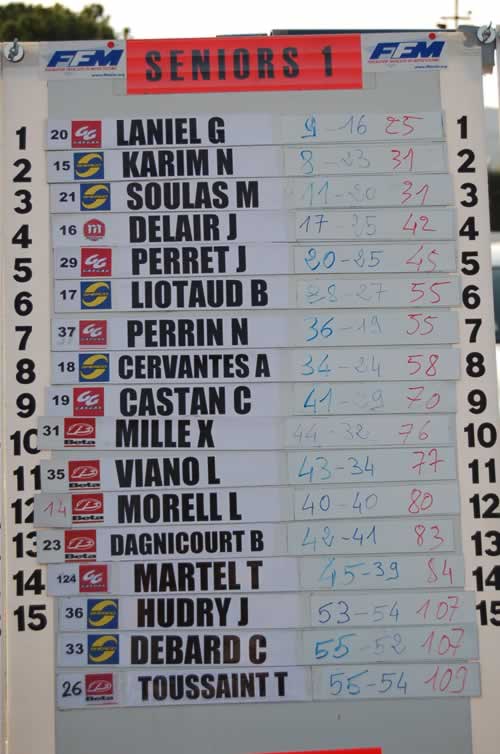 FFM SENIORS 1 FFM
1 20 GG LANIEL G 9-16 25 1
2 15 KARIM N 8-23 31 2
3 21 SOULAS M 11-20 31 3
4 16 m DELAIR J 17-25 42 4
5 29 GG PERRET J 20-25 45 5
6 17 LIOTAUD B 28-27 55 6
7 37 GG PERRIN N 36-19 55 7
8 18 CERVANTES A 34-24 58 8
9 19 GG CASTAN C 41-29 70 9
10 31 Beta MILLE X 44-32 76 10
11 35 Beta VIANO L 43-34 77 11
12 14 Beta MORELL L 40-40 80 12
13 23 Beta DAGNICOURT B 42-41 83 13
14 124 GG MARTEL T 45-39 84 14
15 36 HUDRY J 53-54 107 15
33 DEBARD C 55-52 107
26 Beta TOUSSAINT T 55-54 109